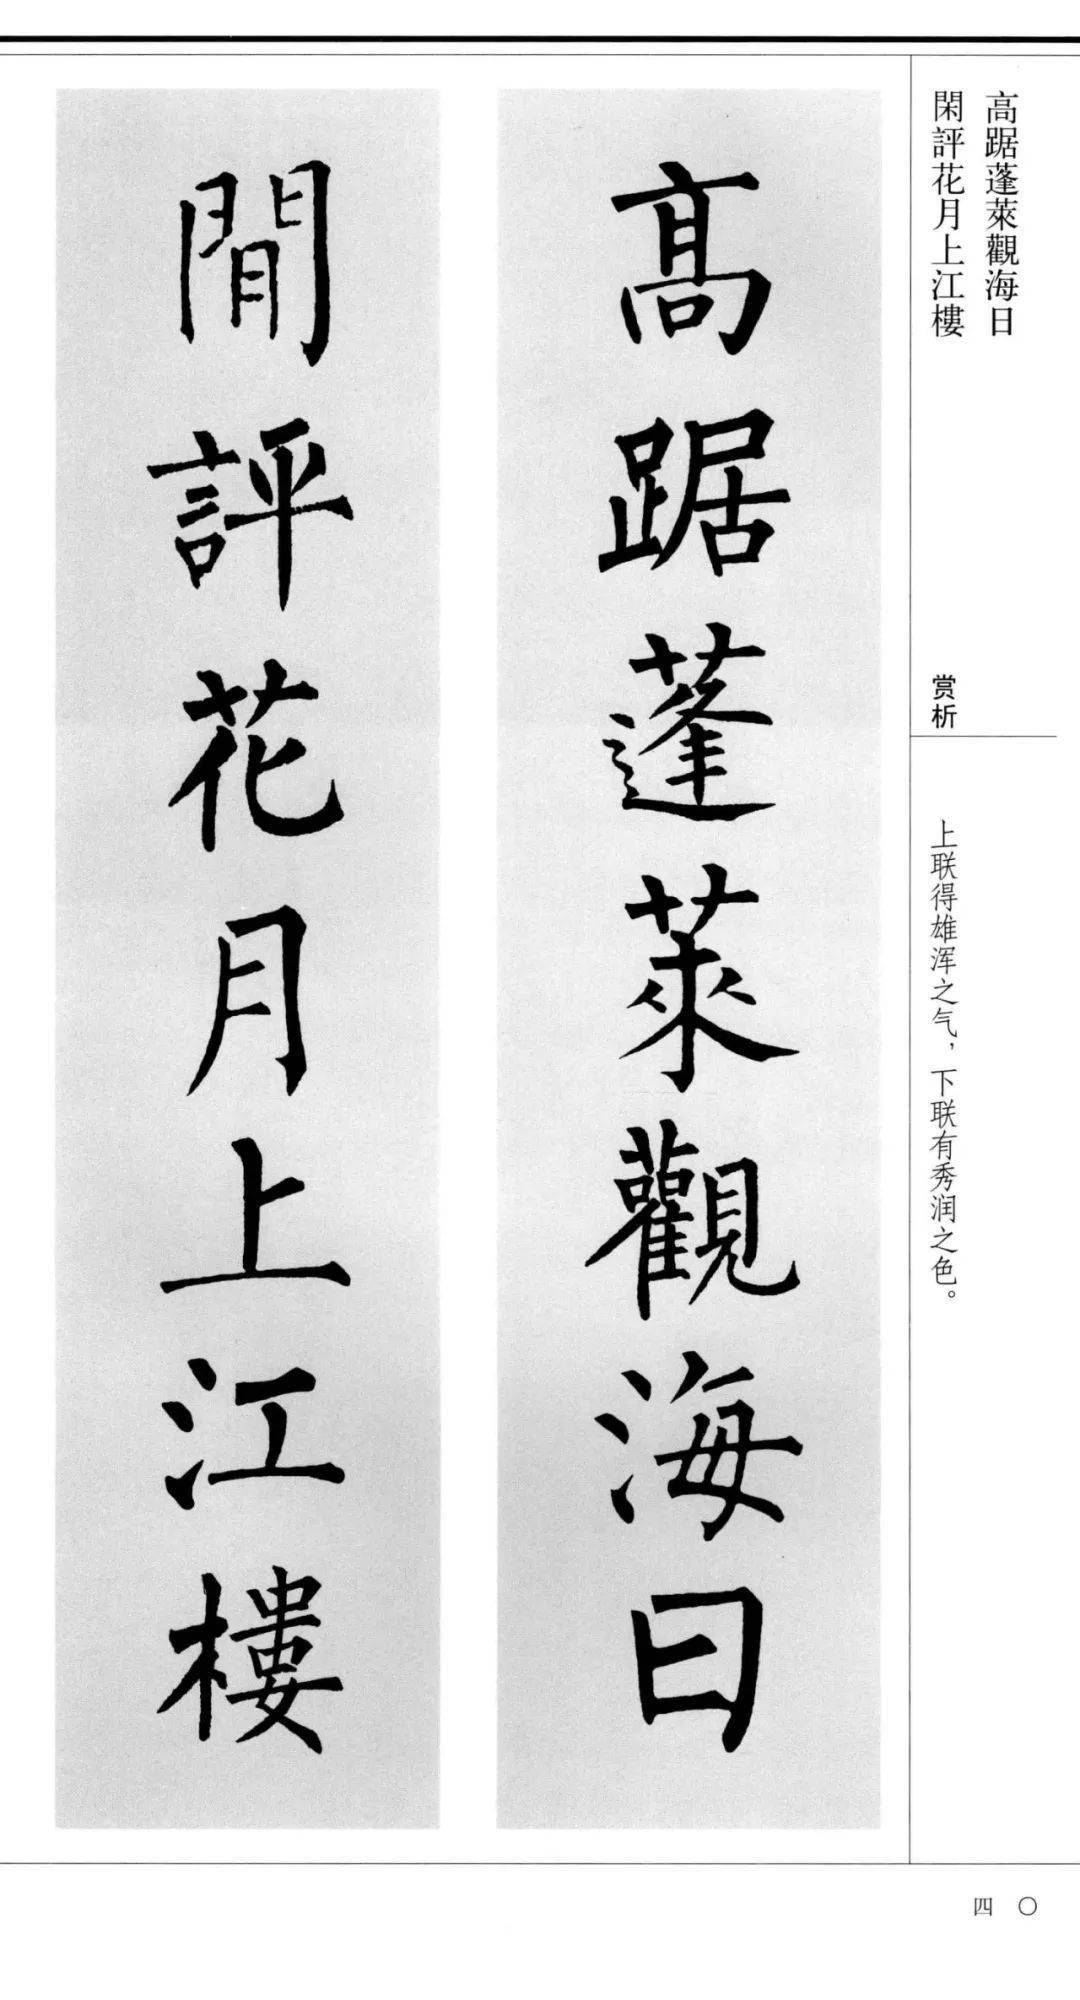 高踞蓬萊觀海日
閑評花月上江樓
赏析
上联得雄浑之气，下联有秀润之色。
高踞蓬萊觀海日
閒評花月上江樓
四〇